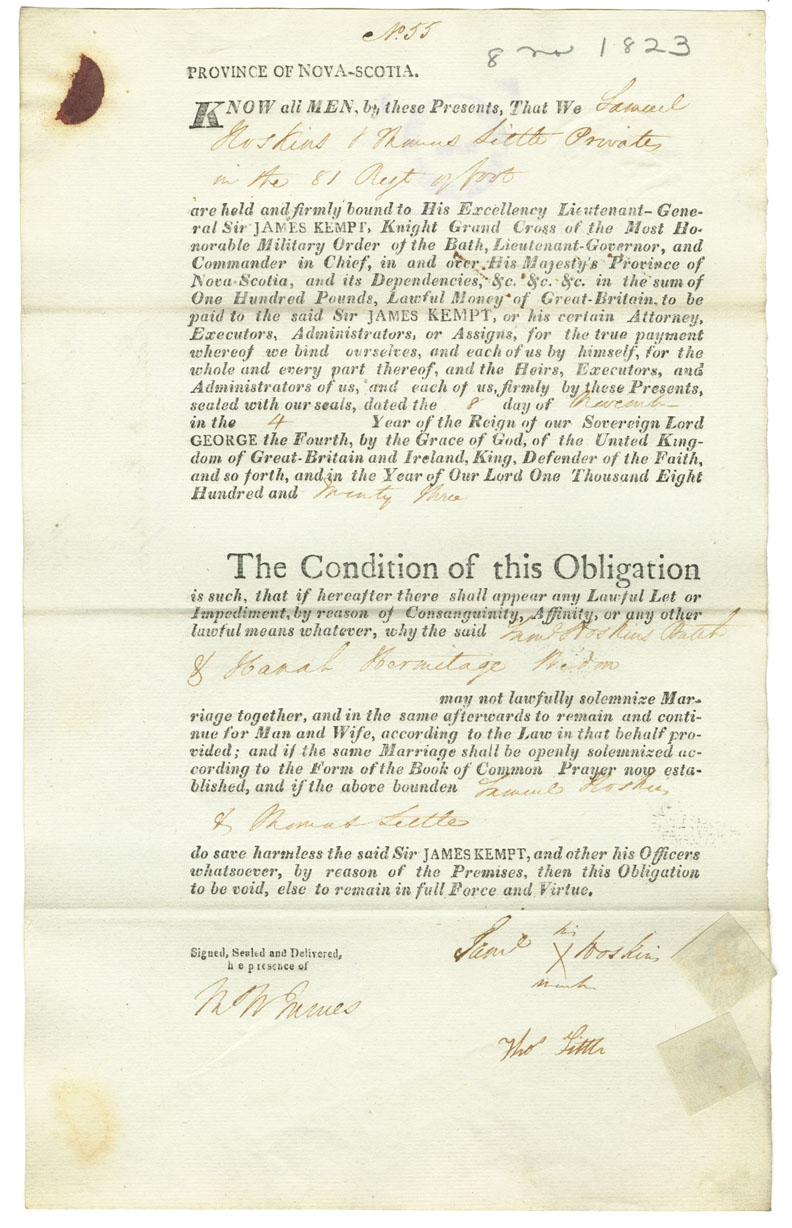 No. 55
8 nov 1823
PROVINCE OF NOVA-SCOTIA.
KNOW all MEN, by these Presents, That We Samuel
Hoskins & Thomas Little Privates
in the 81 Regt of foot
are held and firmly bound to His Excellency Lieutenant-Gene-
ral Sir JAMES KEMPT, Knight Grand Cross of the Most Ho-
norable Military Order of the Bath, Lieutenant-Governor, and
Commander in Chief, in and over His Majesty's Province of
Nova-Scotia, and its Dependencies, &c. &c. &c. in the sum of
One Hundred Pounds, Lawful Money of Great-Britain, to be
paid to the said Sir JAMES KEMPT, or his certain Attorney,
Executors, Administrators, or Assigns, for the true payment
whereof we bind ourselves, and each of us by himself, for the
whole and every part thereof, and the Heirs, Executors, and
Administrators of us, and each of us, firmly by these Presents,
sealed with our seals, dated the 8 day of Novemb
in the 4 Year of the Reign of our Sovereign Lord
GEORGE the Fourth, by the Grace of God, of the United King-
dom of Great-Britain and Ireland, King, Defender of the Faith,
and so forth, and in the Year of Our Lord One Thousand Eight
Hundred and Twenty three
The Condition of this Obligation
is such, that if hereafter there shall appear any Lawful Let or
Impediment, by reason of Consanguinity, Affinity, or any other
lawful means whatever, why the said Saml Hoskins Batch
& Hanah Hermitage Widow
may not lawfully solemnize Mar-
riage together, and in the same afterwards to remain and conti-
nue for Man and Wife, according to the Law in that behalf pro-
vided; and if the same Marriage shall be openly solemnized ac-
cording to the Form of the Book of Common Prayer now esta-
blished, and if the above bounden Samuel Hoskins
& Thomas Little
do save harmless the said Sir JAMES KEMPT, and other his Officers
whatsoever, by reason of the Premises, then this Obligation
to be void, else to remain in full Force and Virtue.
Signed, Sealed and Delivered,
he presence of
his
Saml X Hoskins
mark
Thos Little